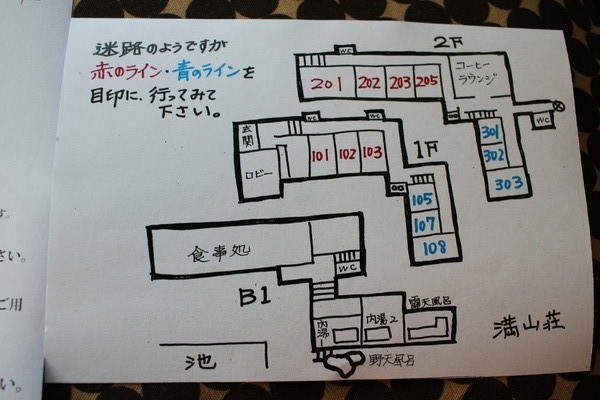 迷路のようですが
赤のライン・青のラインを
目印に、行ってみて
下さい。
2F
WC
コーヒー
ラウンジ
201
202
203
205
WC
301
302
303
玄関
ロビー
WC
WC
101
102
103
1F
105
107
108
食事処
WC
B1
内湯1
内湯2
露天風呂
野天風呂
池
満山荘
す。
さい。
ご用
い。